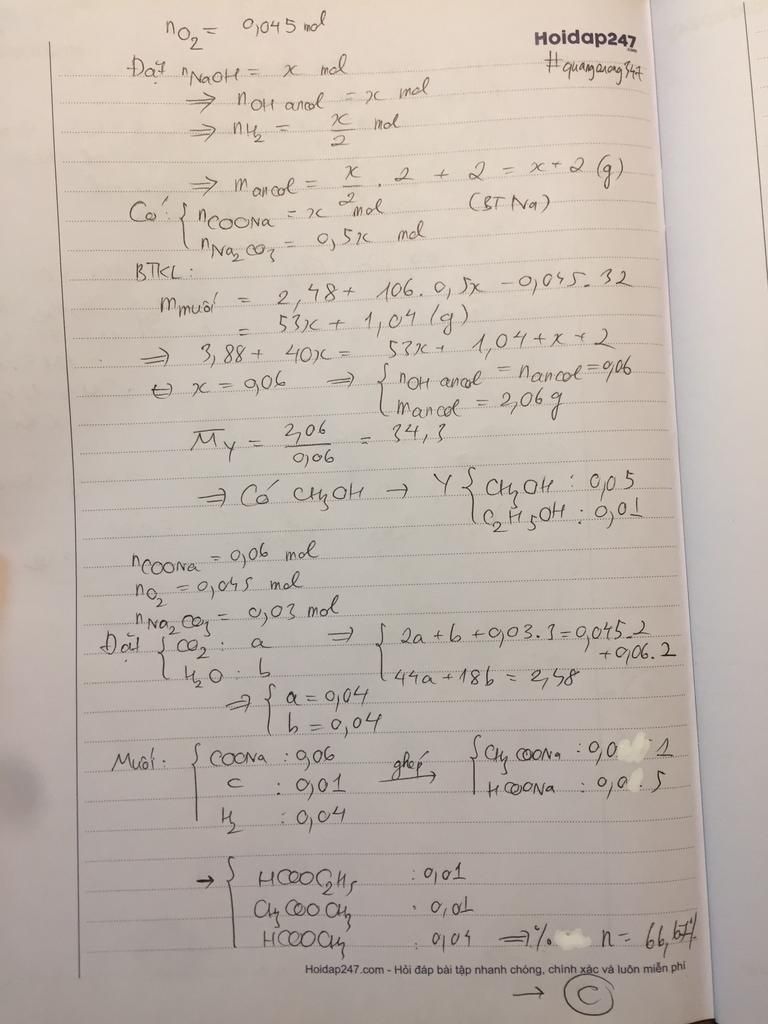 nO2 = 0,045 mol
Hoidap247
.com
#quangcuong347
Đặt nNaOH = x mol
⇒ nOH ancol = x mol
⇒ nH2 = x/2 mol
⇒ mancol = x/2 . 2 + 2 = x + 2 (g)
Có: { nCOONa = x mol (BT Na)
nNa2CO3 = 0,5x mol
BTKL:
mmuối = 2,48 + 106. 0,5x - 0,045. 32
= 53x + 1,04 (g)
⇒ 3,88 + 40x = 53x + 1,04 + x + 2
⇔ x = 0,06 ⇒ { nOH ancol = nancol = 0,06
mancol = 2,06 g
M̅Y = 2,06/0,06 = 34,3
⇒ Có CH3OH → Y { CH3OH : 0,05
C2H5OH : 0,01
nCOONa = 0,06 mol
nO2 = 0,045 mol
nNa2CO3 = 0,03 mol
Đặt { CO2 : a ⇒ { 2a + b + 0,03.3 = 0,045.2
+ 0,06.2
H2O : b 44a + 18b = 2,48
⇒ { a = 0,04
b = 0,04
Muối: { COONa : 0,06 ghép → { CH3COONa : 0,0 1
C : 0,01 HCOONa : 0,0 5
H2 : 0,04
→ { HCOOC2H5 : 0,01
CH3COOCH3 : 0,01
HCOOCH3 : 0,04 ⇒ % n = 66,67%
Hoidap247.com - Hỏi đáp bài tập nhanh chóng, chính xác và luôn miễn phí
→ C